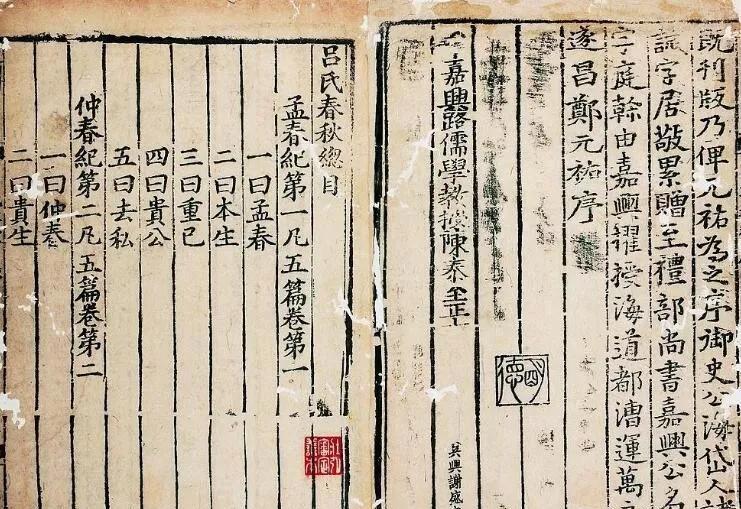 既刊版乃俾元祐為之序御史公海岱人諱
誠字居敬累贈至禮部尚書嘉興公名
字庭幹由嘉興擢授海道都漕運萬
遂昌鄭元祐序
吳興謝盛
嘉興路儒學教授陳泰至正
呂氏春秋總目
孟春紀第一凡五篇卷第一
一曰孟春
二曰本生
三曰重已
四曰貴公
五曰去私
仲春紀第二凡五篇卷第二
一曰仲春
二曰貴生